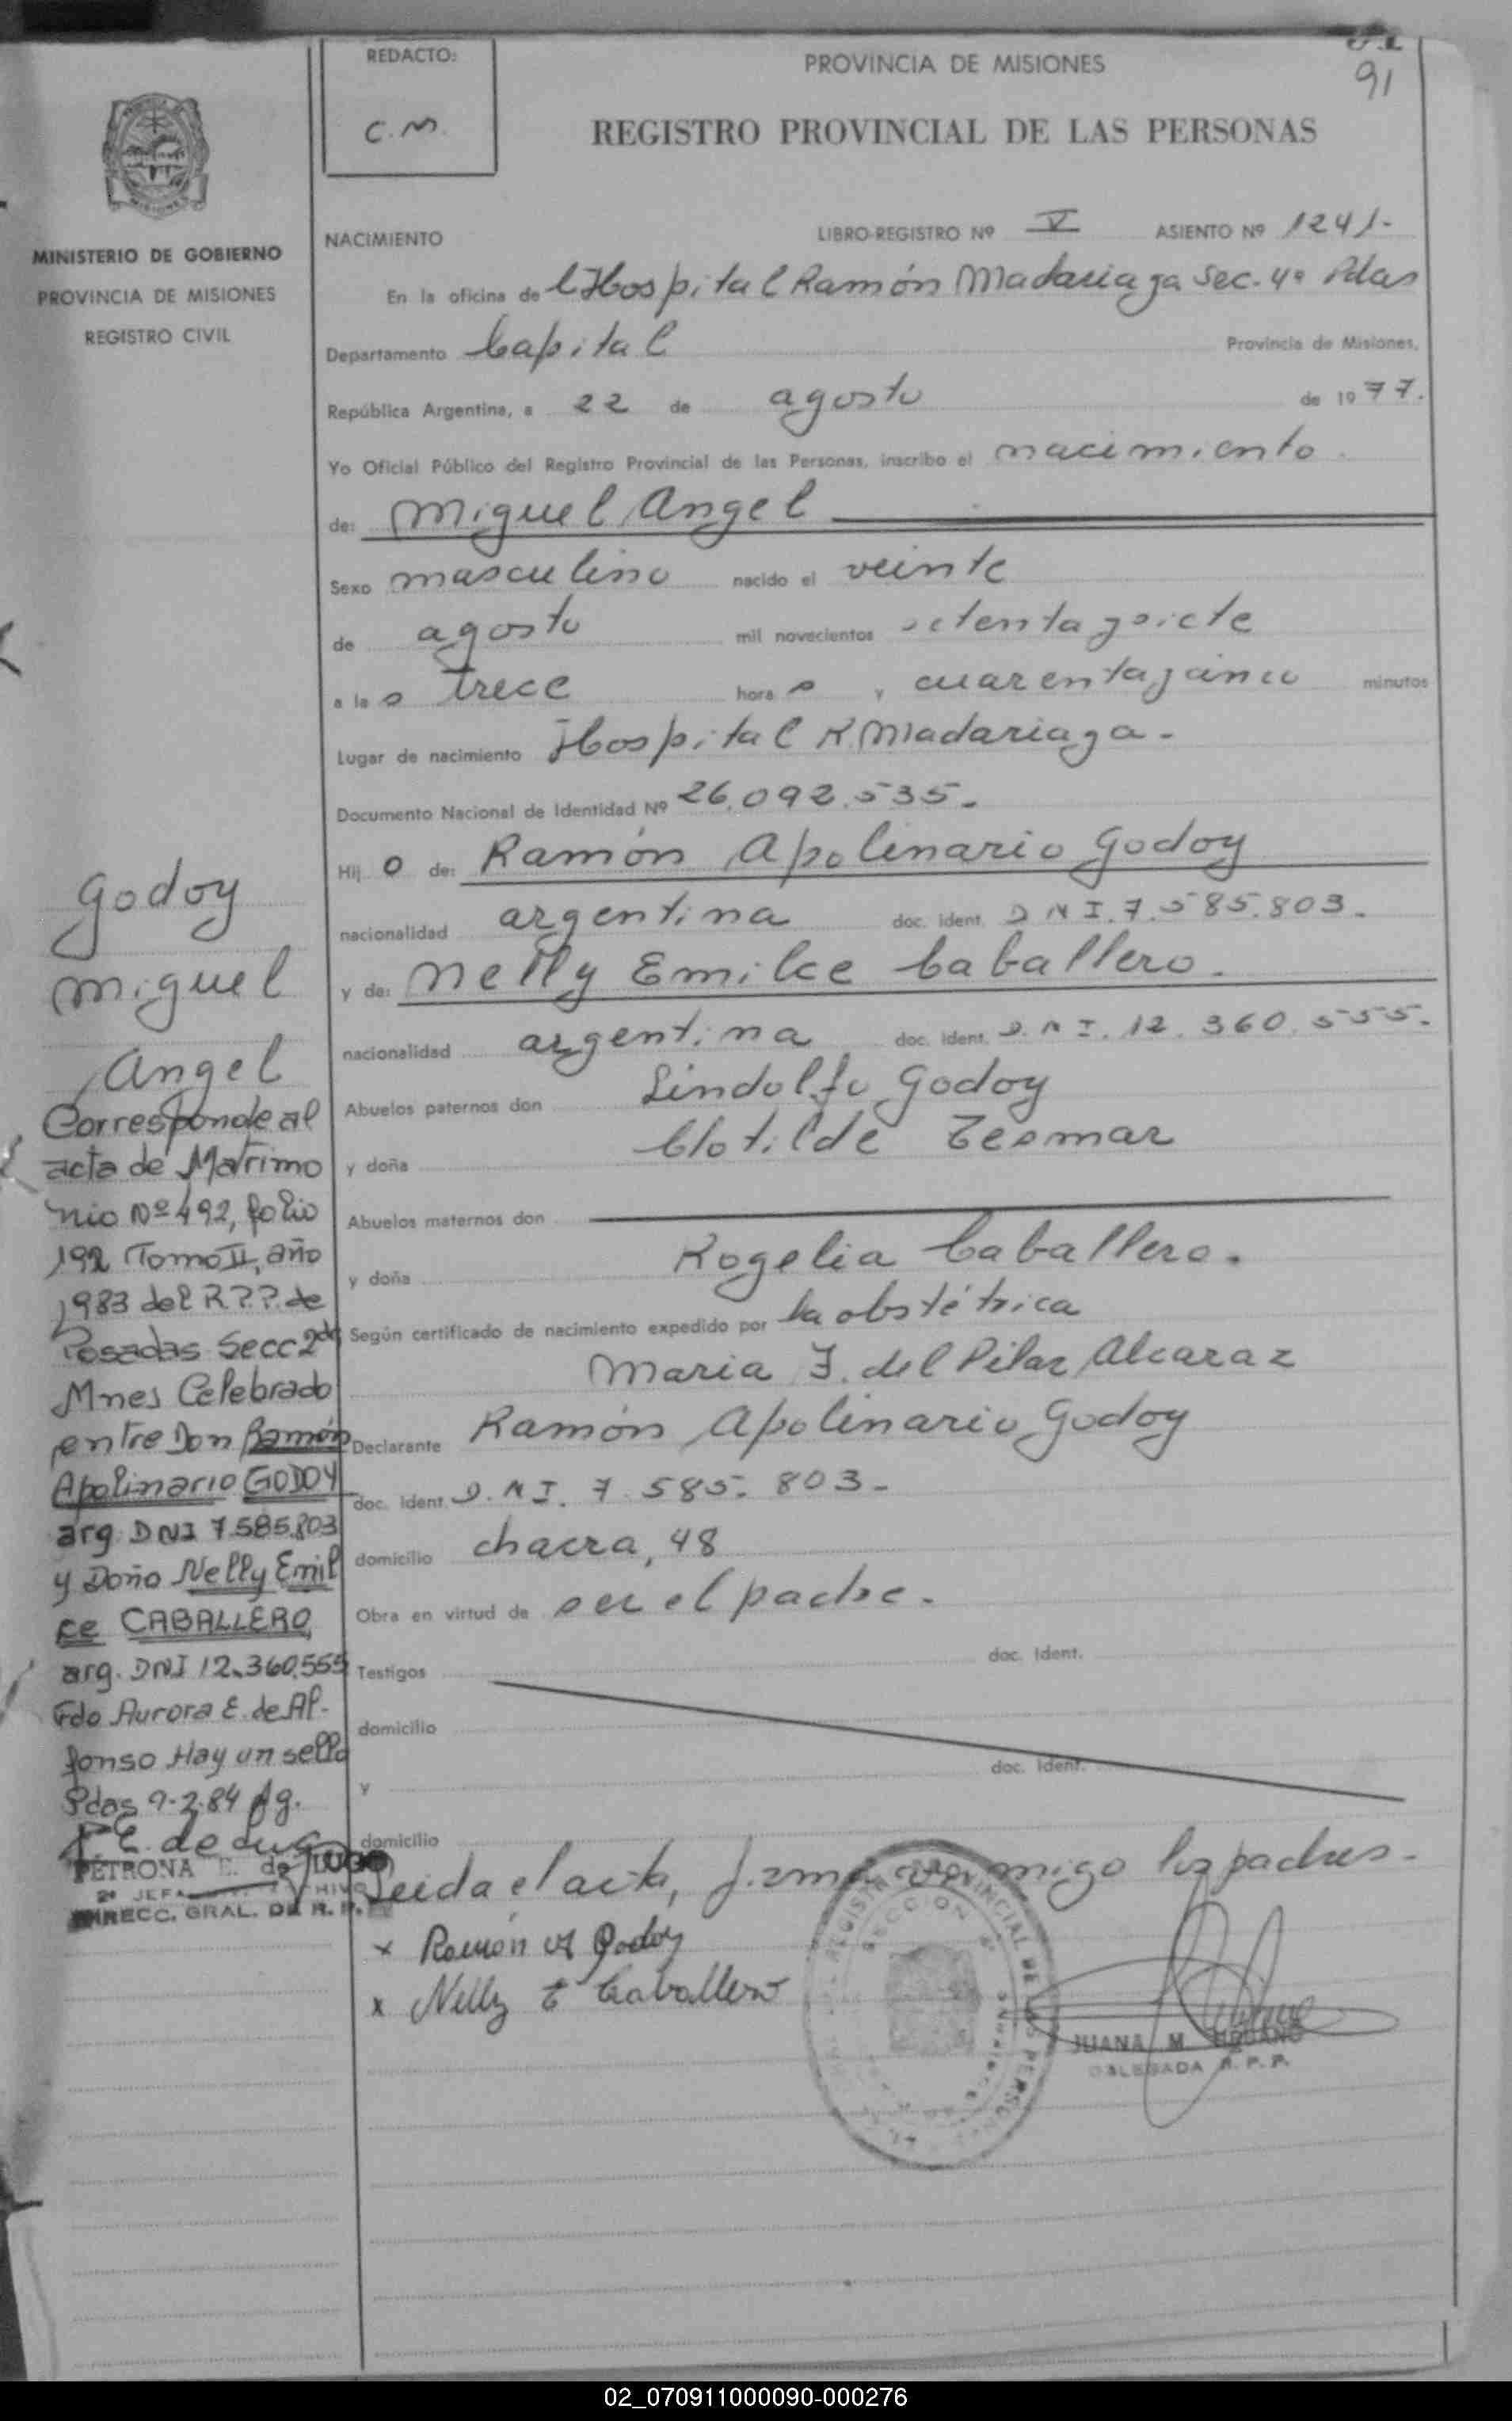 REDACTO:
C.M.
PROVINCIA DE MISIONES
91
REGISTRO PROVINCIAL DE LAS PERSONAS
MINISTERIO DE GOBIERNO
PROVINCIA DE MISIONES
REGISTRO CIVIL
NACIMIENTO LIBRO-REGISTRO Nº V ASIENTO Nº 1241-
En la oficina del Hospital Ramón Madariaga Sec. 4ª Pdas
Departamento Capital Provincia de Misiones,
República Argentina, a 22 de agosto de 1977.
Yo Oficial Público del Registro Provincial de las Personas, inscribo el nacimiento
de: Miguel Angel
Sexo masculino nacido el veinte
de agosto mil novecientos setenta y siete
a las trece horas y cuarenta y cinco minutos
Lugar de nacimiento Hospital R. Madariaga.
Documento Nacional de Identidad Nº 26.092.535.
Hijo de: Ramón Apolinario Godoy
nacionalidad argentina doc. ident. DNI.7.585.803.
y de: Nelly Emilce Caballero.
nacionalidad argentina doc. ident. D.N.I. 12.360.555.
Abuelos paternos don Lindolfo Godoy
y doña Clotilde Tesmar
Abuelos maternos don
y doña Rogelia Caballero.
Según certificado de nacimiento expedido por la obstétrica
Maria J. del Pilar Alcaraz
Declarante Ramón Apolinario Godoy
doc. ident. D.N.I. 7.585.803-
domicilio chacra, 48
Obra en virtud de ser el padre.
doc. ident.
Testigos
domicilio
doc. ident.
y
domicilio
Leida el acta, firman conmigo los padres.
x Ramón A Godoy
x Nelly E Caballero
JUANA M.
DELEGADA R. P. P.
Godoy
Miguel
Angel
Corresponde al
acta de Matrimo
nio Nº 492, folio
192 Tomo II, año
1983 del R.P.P. de
Posadas Secc 2da
Mnes Celebrado
entre Don Ramón
Apolinario GODOY
arg. DNI 7.585.803
y Doña Nelly Emil
ce CABALLERO,
arg. DNI 12.360.555
Fdo Aurora E. de Al-
fonso Hay un sello
Pdas 9-2-84 Ag.
P E. de Lugo
PETRONA E. de LUGO
2º JEFA ARCHIVO
DIRECC. GRAL. DE R. P.
02_070911000090-000276